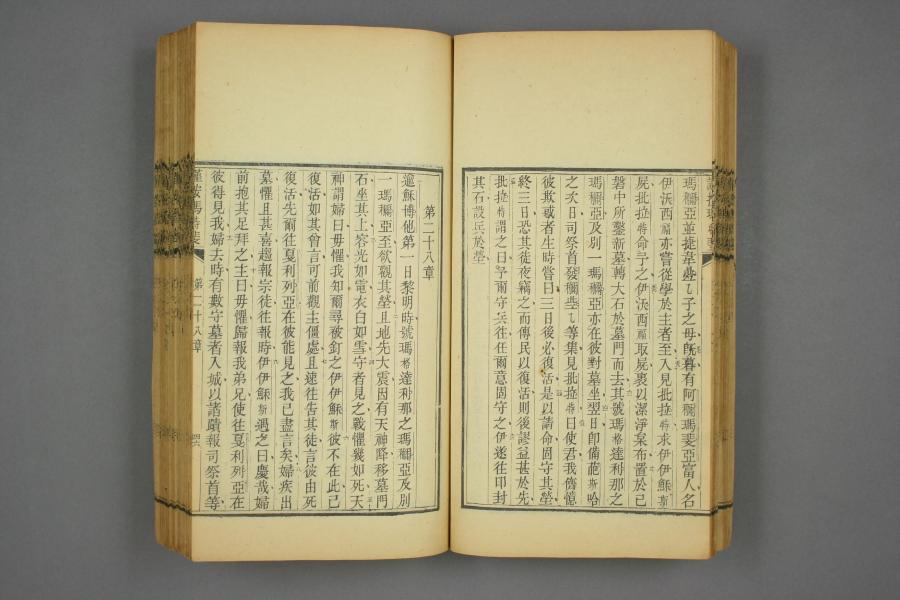 瑪穪亞並提韋壘乚子之母旣暮有阿穪瑪斐亞富人名
伊浜西爾亦嘗從學於主者至入見批拉特求伊伊穌斯
屍批拉特命予之伊浜西爾取屍裹以潔淨枲布置於己
磐中所鑿新墓轉大石於墓門而去其號瑪格達利那之
瑪穪亞及別一瑪穪亞亦在彼對墓坐翌日卽備葩斯哈
之次日司祭首發穪些乚等集見批拉特曰使君我儕憶
彼欺惑者生時嘗曰三日後必復活是以請命固守其塋
終三日恐其徒夜竊之而傳民以復活則後謬益甚於先
批拉特謂之曰予爾守兵往任爾意固守之伊遂往印封
其石設兵於塋
第二十八章
逾穌博他第一日黎明時號瑪格達利那之瑪穪亞及別
一瑪穪亞至欲觀其塋且地先大震因有天神降移墓門
石坐其上容光如電衣白如雪守者見之戰懼幾如死天
神謂婦曰毋懼我知爾尋被釘之伊伊穌斯彼不在此已
復活如其曾言可前觀主僵處且速往告其徒言彼由死
復活先爾往戛利列亞在彼能見之我已盡言矣婦疾出
墓懼且甚喜趨報宗徒往報時伊伊穌斯遇之曰慶哉婦
前抱其足拜之主曰毋懼歸報我弟兄使往戛利列亞在
彼得見我婦去時有數守墓者入城以諸蹟報司祭首等
第二十八章